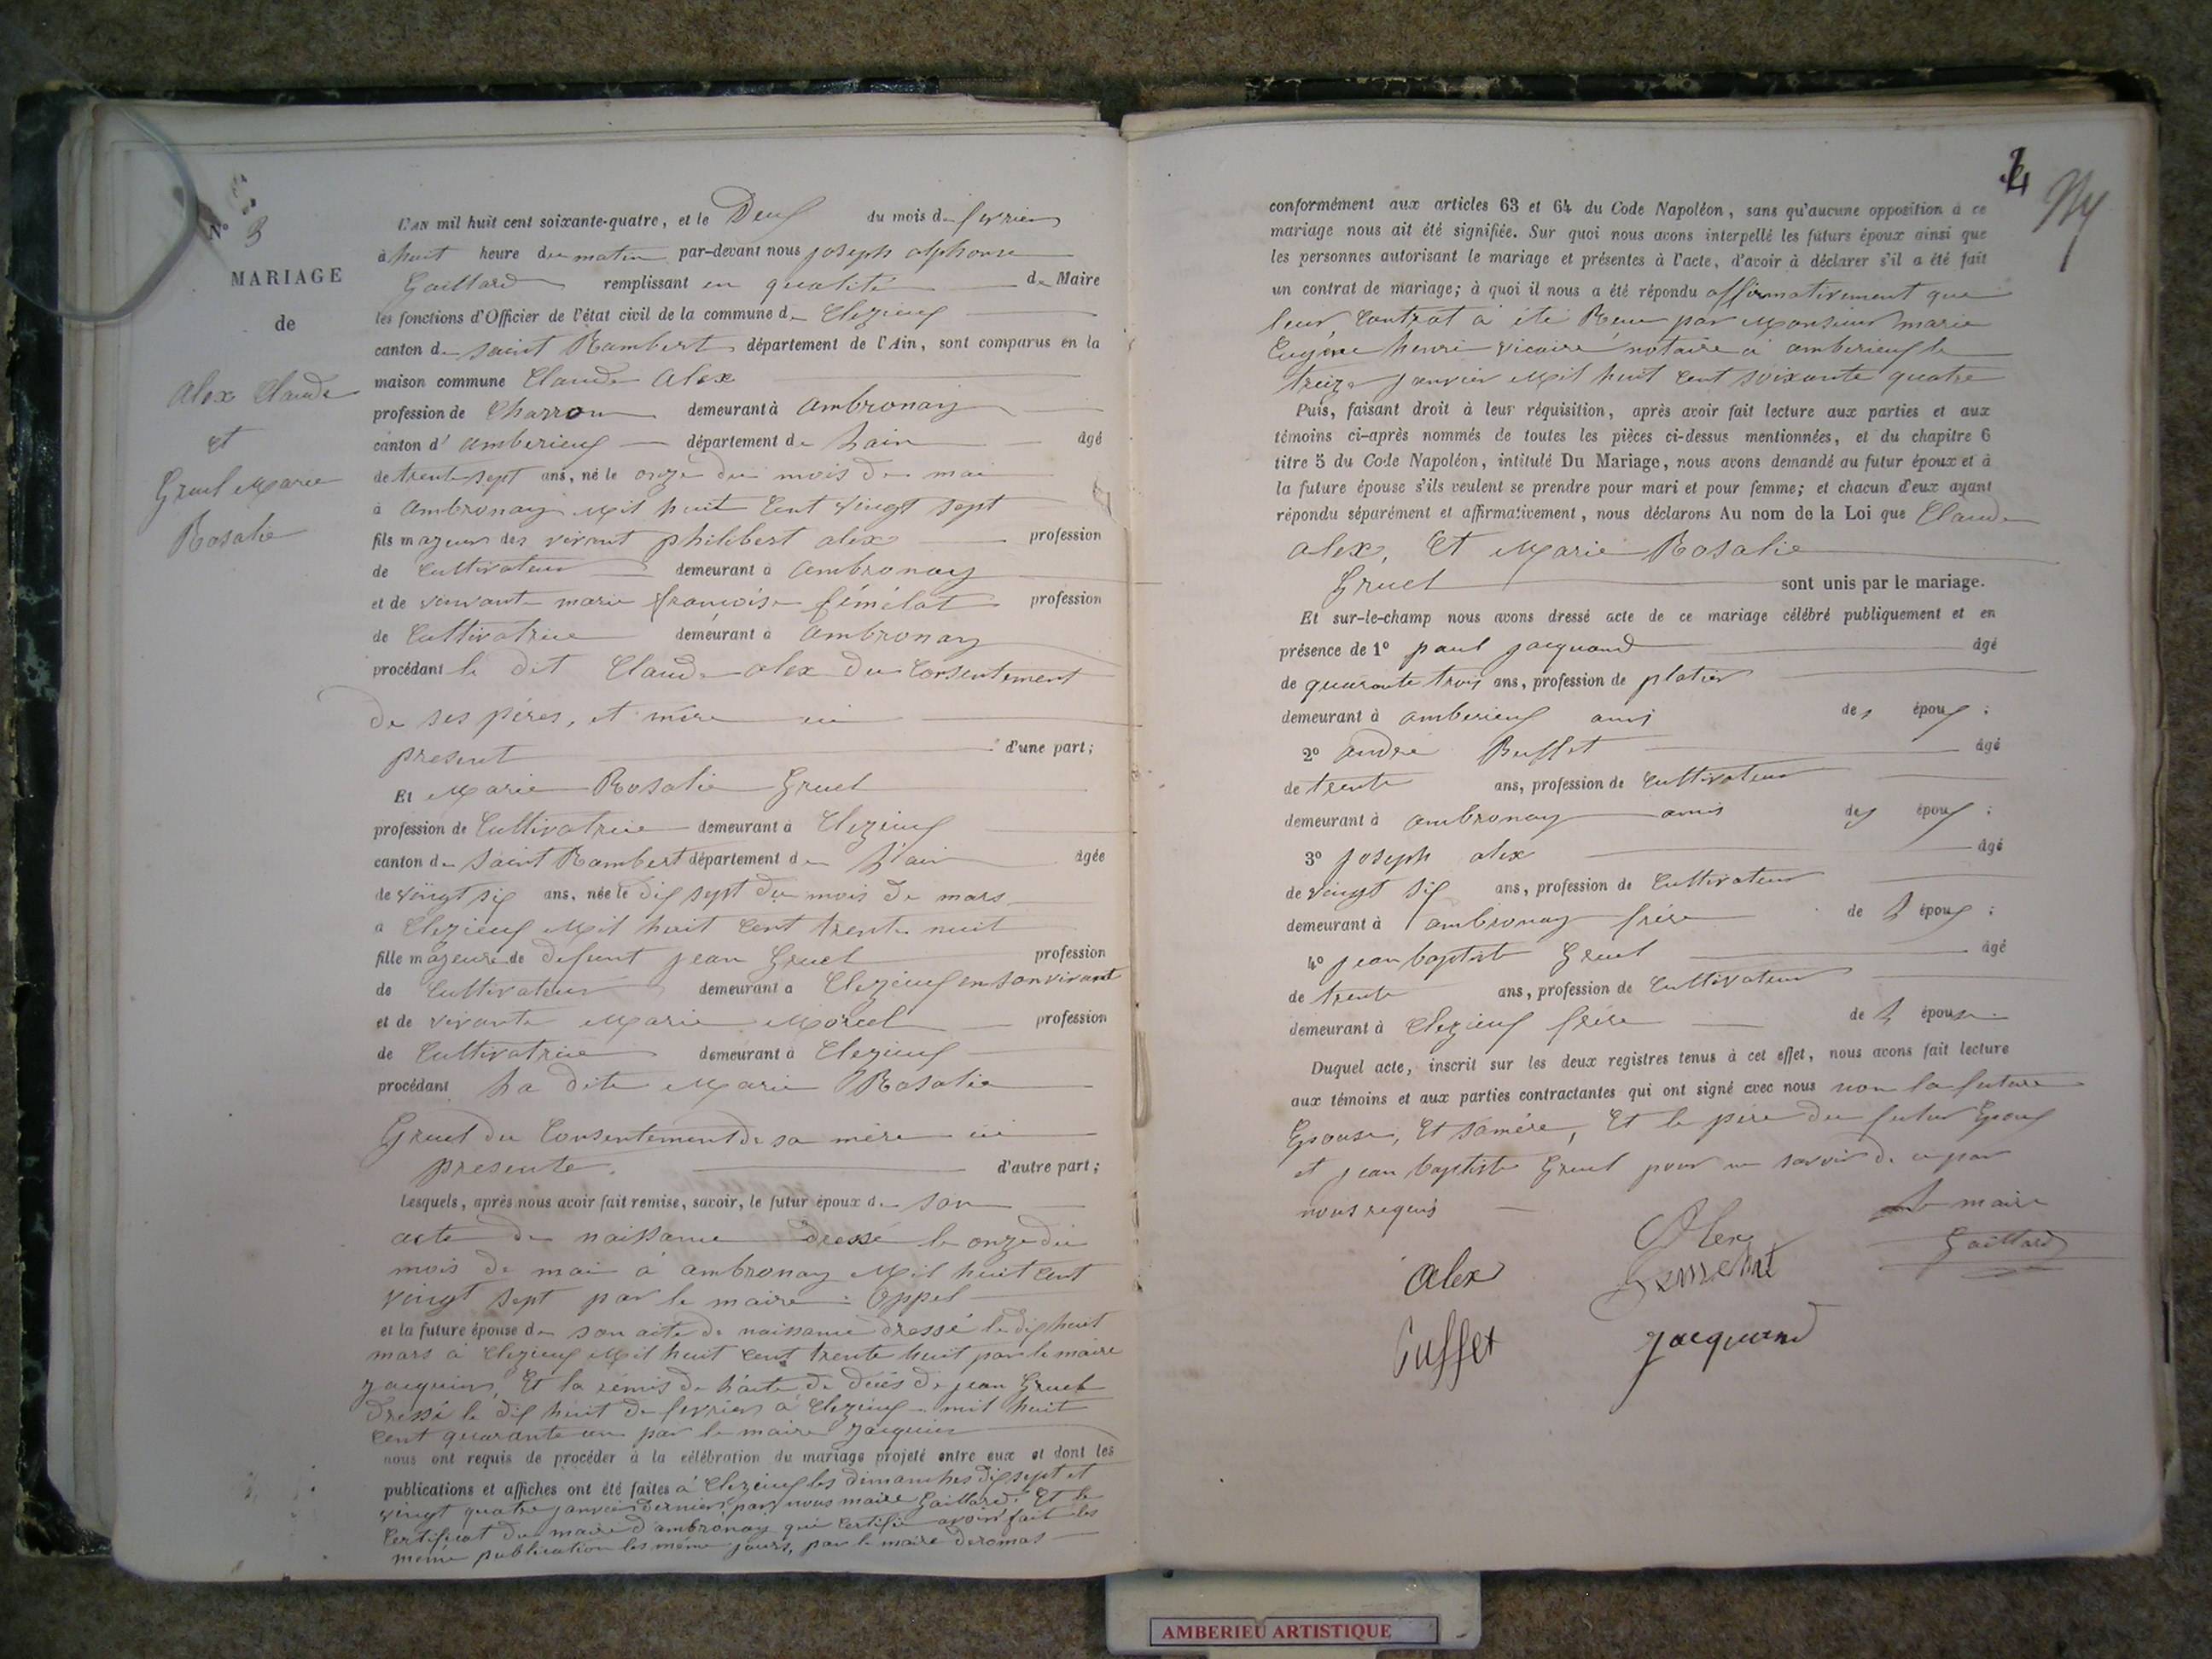 N° 3
MARIAGE
de
Alex Claude
et
Gruel Marie
Rosalie
L'AN mil huit cent soixante-quatre, et le Deux du mois de fevrier
à huit heure du matin par-devant nous joseph alphonse
Gaillard remplissant en qualité de Maire
les fonctions d'Officier de l'état civil de la commune de Clezieux
canton de saint Rambert département de l'Ain, sont comparus en la
maison commune Claude Alex
profession de Charron demeurant à Ambronay
canton d' Amberieux département de Lain âgé
de trente sept ans, né le onze du mois de mai
à Ambronay mil huit Cent vingt sept
fils majeur de vivant philibert alex profession
de Cultivateur demeurant à Ambronay
et de vivante marie françoise féménat profession
de Cultivatrice demeurant à Ambronay
procédant le dit Claude alex du Consentement
de ses péres, et mére ici
present d'une part;
Et Marie Rosalie Gruel
profession de Cultivatrice demeurant à Clezieux
canton de Saint Rambert département de L'ain âgée
de vingt six ans, née le dix sept du mois de mars
à Clezieux Mil huit Cent trente huit
fille majeure de defunt jean Gruel profession
de Cultivateur demeurant à Clezieux en son vivant
et de vivante Marie Morel profession
de Cultivatrice demeurant à Clezieux
procédant La dite Marie Rosalie
Gruel du Consentement de sa mére ici
presente. d'autre part;
Lesquels, après nous avoir fait remise, savoir, le futur époux de son
acte de naissance dressé le onze du
mois de mai à ambronay Mil huit Cent
vingt sept par le maire : Oppel
et la future épouse de son acte de naissance dressé le dix huit
mars à Clezieux Mil huit Cent trente huit par le maire
jacquin, Et la remis de l'acte de décés de jean Gruel
Dressé le dix huit de fevrier à Clezieux mil huit
Cent quarante un par le maire jacquin
nous ont requis de procéder à la célébration du mariage projeté entre eux et dont les
publications et affiches ont été faites à Clezieux les dimanches dix sept et
vingt quatre janvier dernier par nous maire Gaillard. Et le
Certificat du maire d'ambronay qui Certifie avoir fait les
même publication les même jours, par le maire deromas
conformément aux articles 63 et 64 du Code Napoléon, sans qu'aucune opposition à ce
mariage nous ait été signifiée. Sur quoi nous avons interpellé les futurs époux ainsi que
les personnes autorisant le mariage et présentes à l'acte, d'avoir à déclarer s'il a été fait
un contrat de mariage; à quoi il nous a été répondu affirmativement que
leur Contrat à été Reçu par Monsieur marie
Eugène henri vicaire notaire à amberieux le
treize janvier Mil huit Cent soixante quatre
Puis, faisant droit à leur réquisition, après avoir fait lecture aux parties et aux
témoins ci-après nommés de toutes les pièces ci-dessus mentionnées, et du chapitre 6
titre 5 du Code Napoléon, intitulé Du Mariage, nous avons demandé au futur époux et à
la future épouse s'ils veulent se prendre pour mari et pour femme; et chacun d'eux ayant
répondu séparément et affirmativement, nous déclarons Au nom de la Loi que Claude
alex, Et Marie Rosalie
Gruel sont unis par le mariage.
Et sur-le-champ nous avons dressé acte de ce mariage célébré publiquement et en
présence de 1° paul jacquand âgé
de quarante trois ans, profession de platier
demeurant à amberieux amis des époux ;
2° andré Buffet âgé
de trente ans, profession de Cultivateur
demeurant à ambronay amis des époux ;
3° joseph alex âgé
de vingt six ans, profession de Cultivateur
demeurant à ambronay frére de L époux ;
4° jean baptiste Gruel âgé
de trente ans, profession de Cultivateur
demeurant à Clezieux frére de L épouse
Duquel acte, inscrit sur les deux registres tenus à cet effet, nous avons fait lecture
aux témoins et aux parties contractantes qui ont signé avec nous non la future
Epouse, Et sa mére, Et le pére du futur Epoux
et jean baptiste Gruel pour ne savoir de ce par
nous requis
Le maire
Gaillard
Alex
Alex
Buffet
Jacquand
AMBERIEU ARTISTIQUE